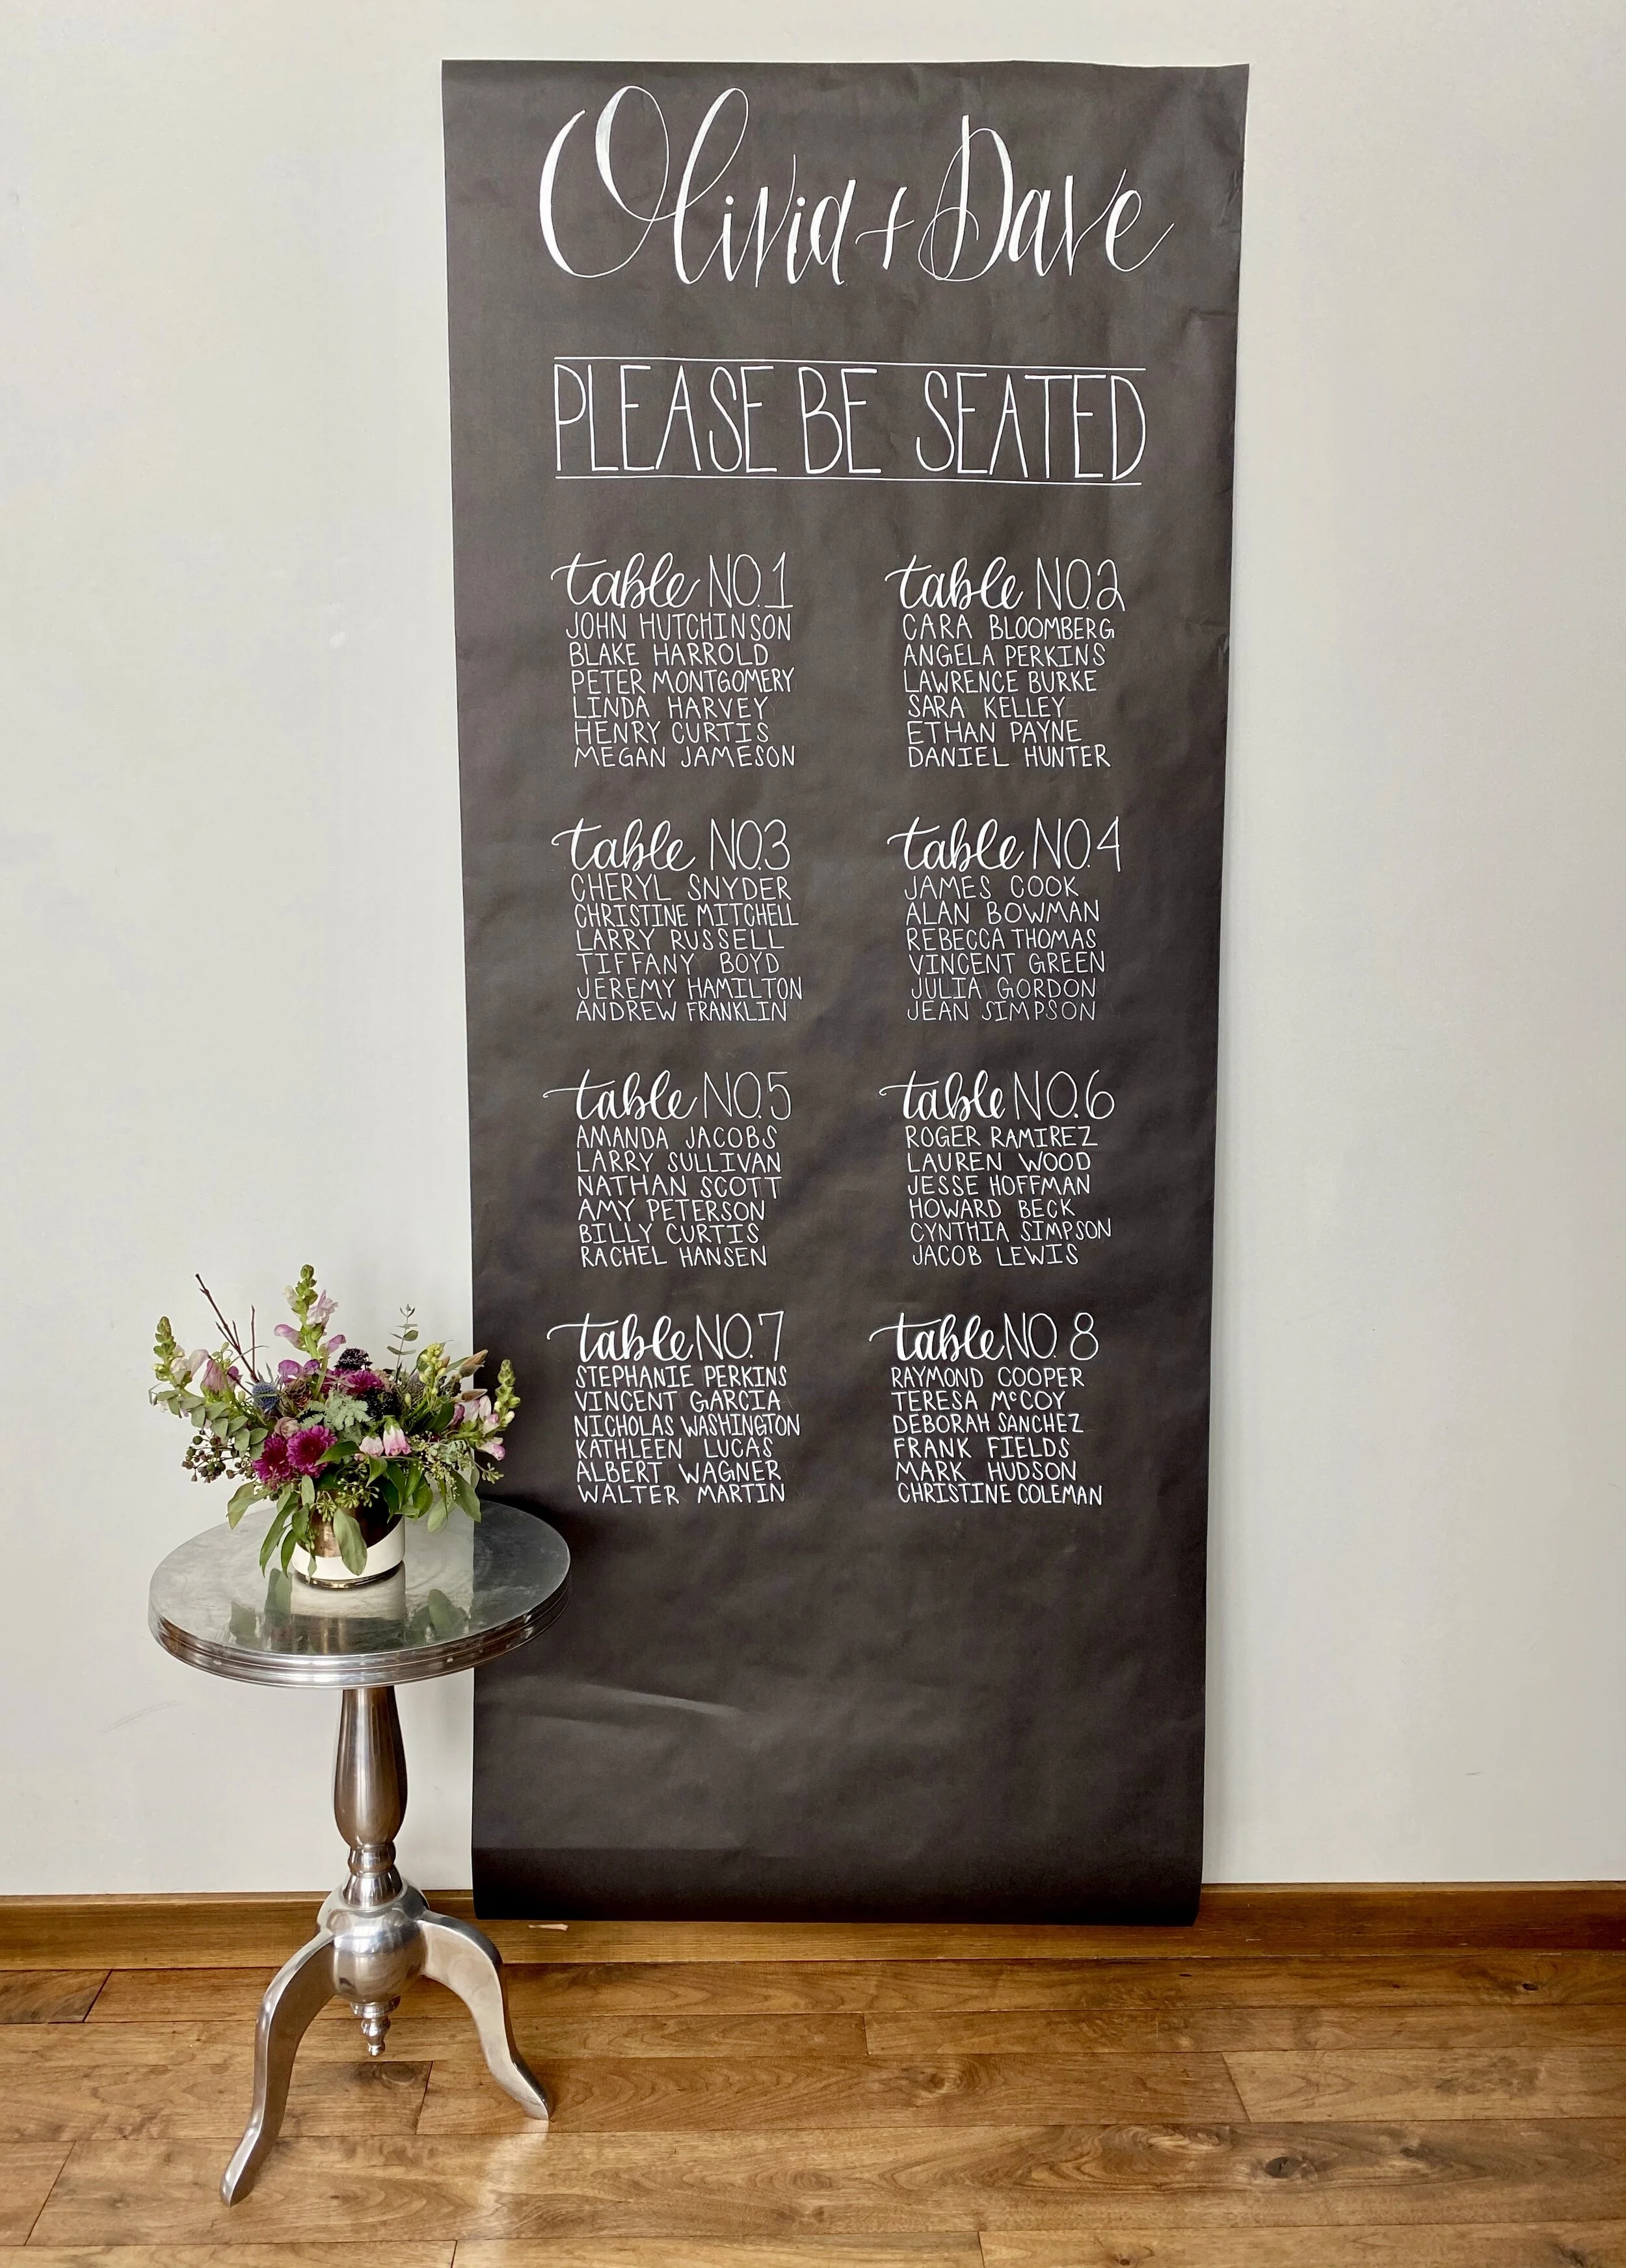 Olivia + Dave
PLEASE BE SEATED
table NO.1
JOHN HUTCHINSON
BLAKE HARROLD
PETER MONTGOMERY
LINDA HARVEY
HENRY CURTIS
MEGAN JAMESON
table NO.2
CARA BLOOMBERG
ANGELA PERKINS
LAWRENCE BURKE
SARA KELLEY
ETHAN PAYNE
DANIEL HUNTER
table NO.3
CHERYL SNYDER
CHRISTINE MITCHELL
LARRY RUSSELL
TIFFANY BOYD
JEREMY HAMILTON
ANDREW FRANKLIN
table NO.4
JAMES COOK
ALAN BOWMAN
REBECCA THOMAS
VINCENT GREEN
JULIA GORDON
JEAN SIMPSON
table NO.5
AMANDA JACOBS
LARRY SULLIVAN
NATHAN SCOTT
AMY PETERSON
BILLY CURTIS
RACHEL HANSEN
table NO.6
ROGER RAMIREZ
LAUREN WOOD
JESSE HOFFMAN
HOWARD BECK
CYNTHIA SIMPSON
JACOB LEWIS
table NO.7
STEPHANIE PERKINS
VINCENT GARCIA
NICHOLAS WASHINGTON
KATHLEEN LUCAS
ALBERT WAGNER
WALTER MARTIN
table NO. 8
RAYMOND COOPER
TERESA McCOY
DEBORAH SANCHEZ
FRANK FIELDS
MARK HUDSON
CHRISTINE COLEMAN